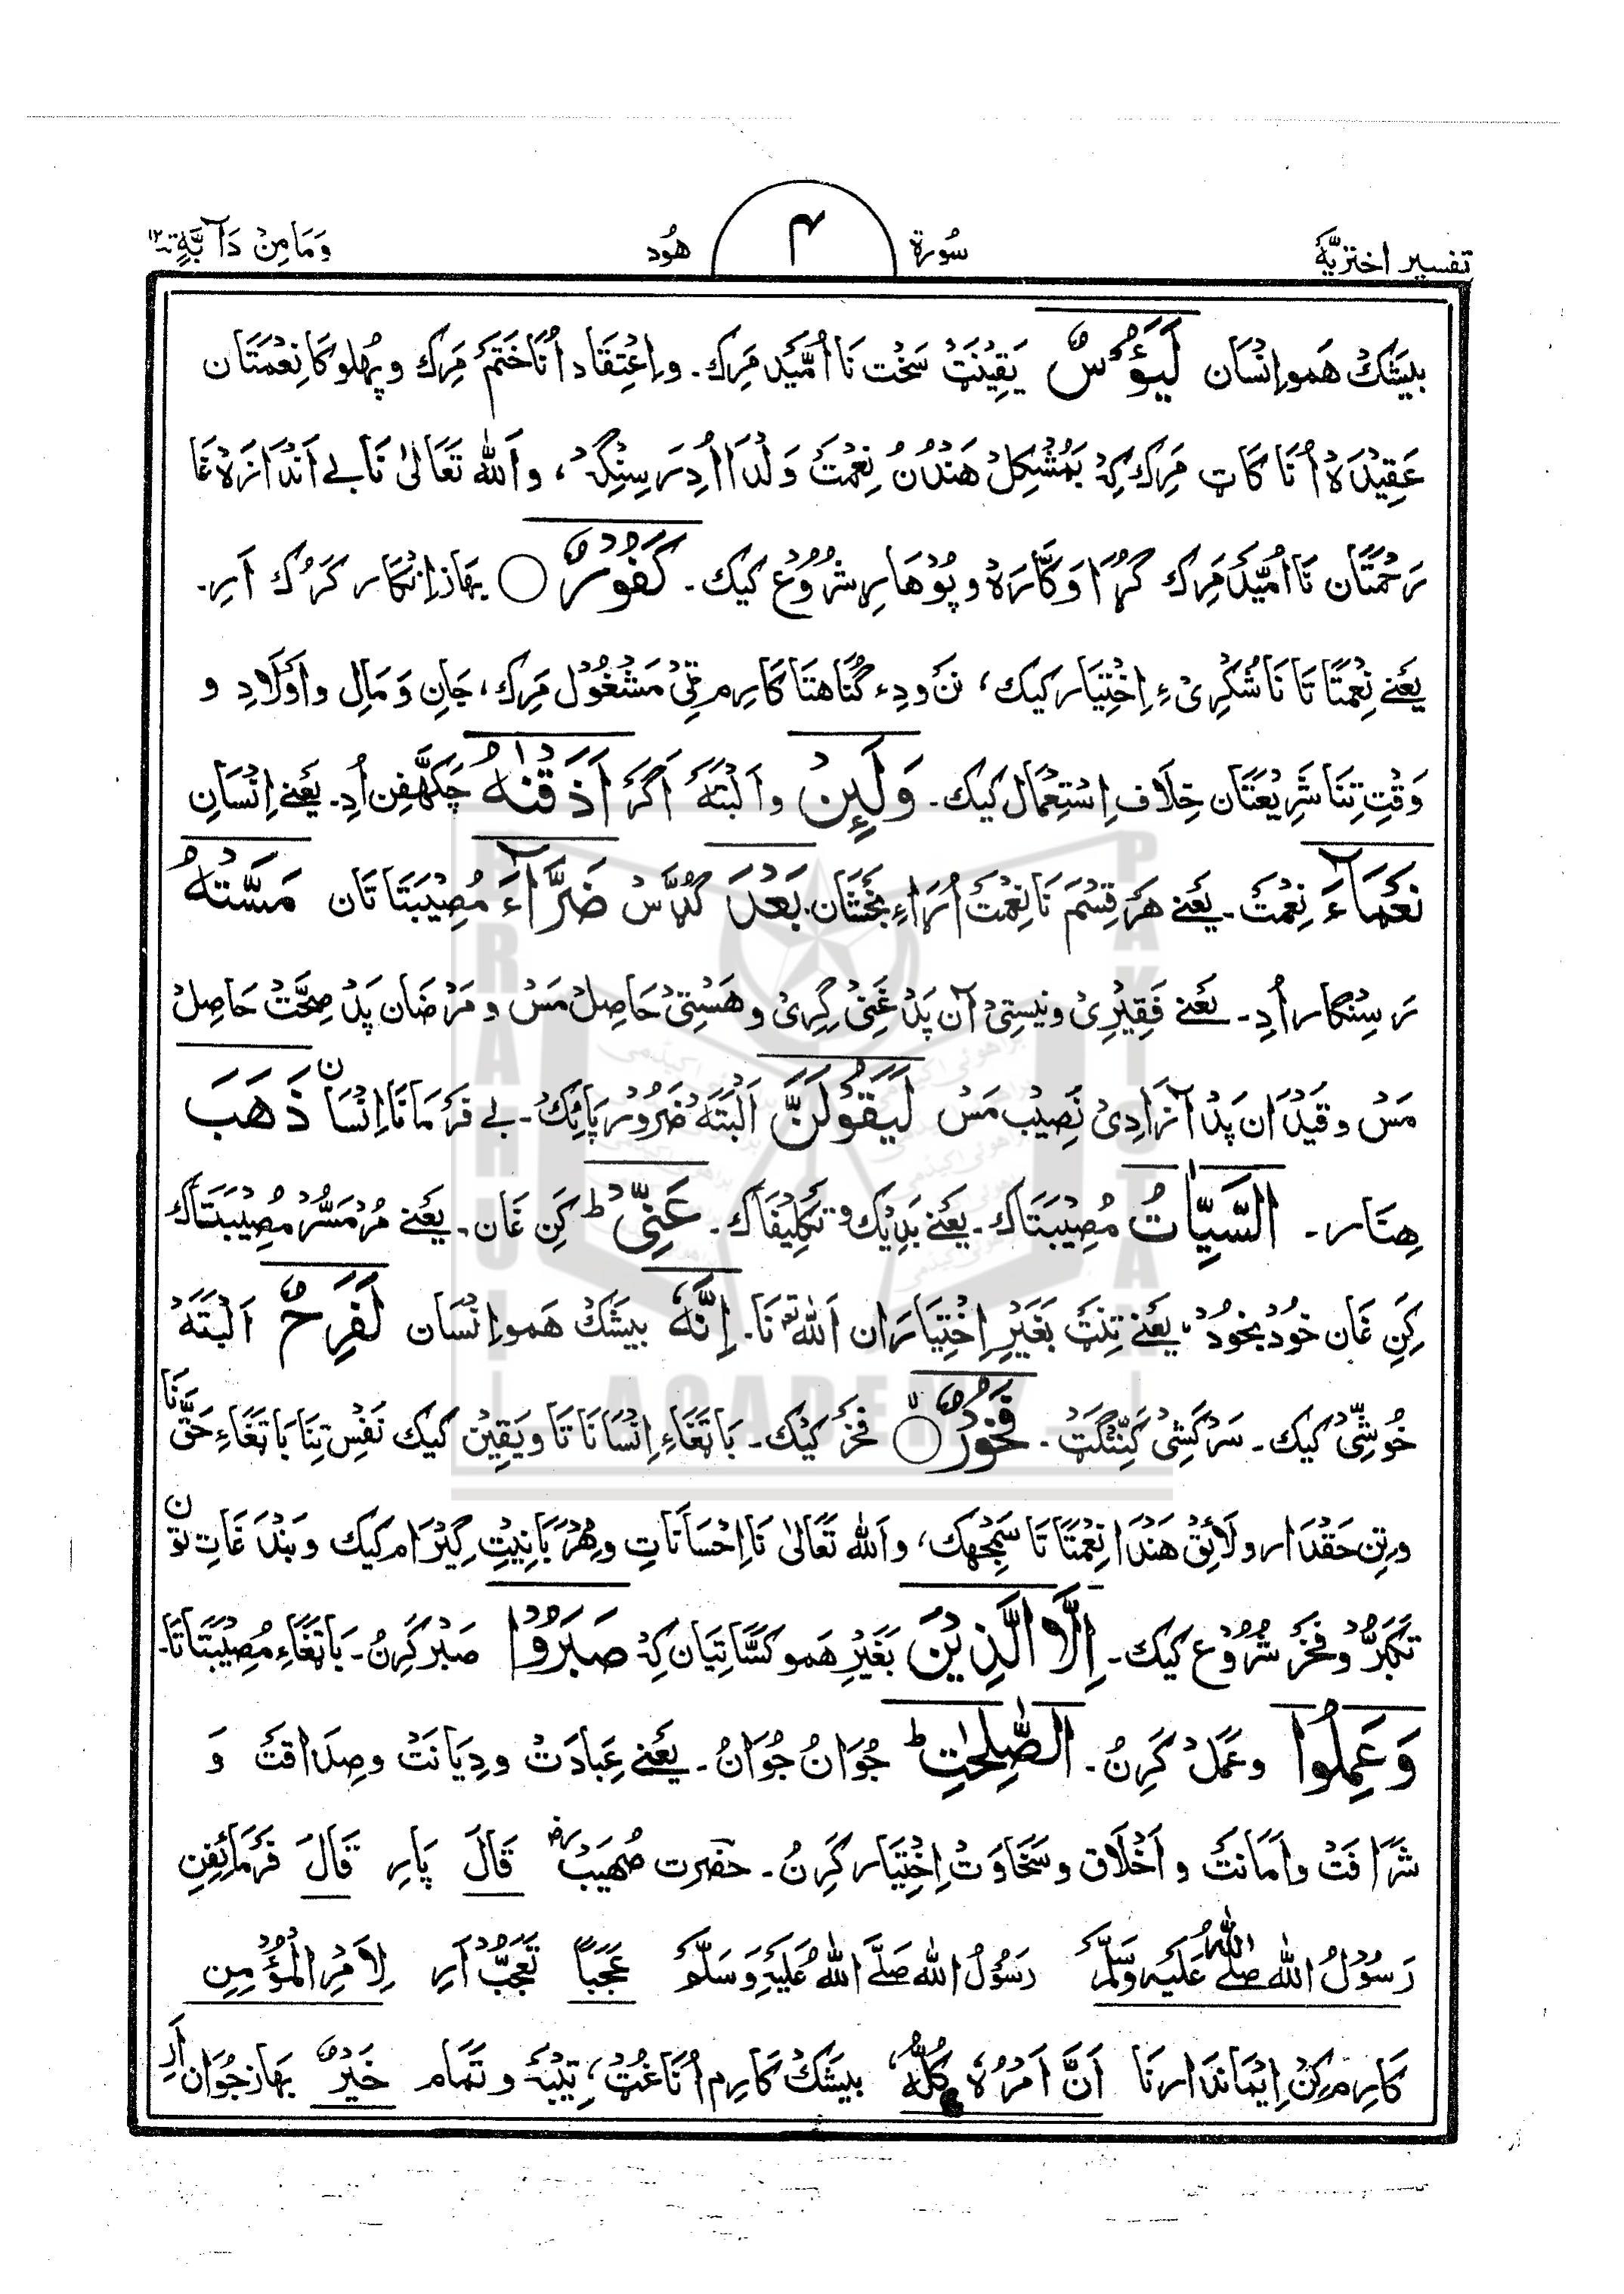 تفسیر اختریّہ سُورۃ ۴ هُود وَمَا مِنْ دَآبَّةٍ ۱۲
بیشَکْ هَمو اِنْسَان لَيَؤُسٌ یَقِیْنَتْ سَخْت نَا اُمِّیْد مَرِک۔ و اِعْتِقَاد اُنَا خَتَمْ مَرِک و پُهلو کَا نِعْمَتَان
عَقِیْدَہ اُنَا کَاتِ مَرِک کِہ بَمُشْکِلْ هَنْدُنُ نِعْمَتْ وَلْدَا اُدِ رَسِنْگِہ، و اَللّٰہ تَعَالٰی نَا بے اَنْدَازَہ غَا
رَحْمَتَان نَا اُمِّیْد مَرِک گُڑَا وَکَّارَہ و پُوْهَارِ شُرُوْع کیک۔ كَفُوْرٌ ○ بهَاز اِنْکَار کَرُک اَرِ۔
یَعْنے نِعْمَتَا تَا نَا شُکْرِیْ ءِ اِخْتِیَار کیک، نَن و دِء گُنَاهتَا کَارِم ٹِیْ مَشْغُوْل مَرِک، جَانِ وَ مَالِ و اَوْلَادِ و
وَقْتِ تِنَا شَرِیْعَتَان خِلَاف اِسْتِعْمَال کیک۔ وَلَئِنْ و اَلْبَتَّہ اَگَرْ اَذَقْنٰهُ چَکهَّفِن اُدِ۔ یَعْنے اِنْسَانِ
نَعْمَآءَ نِعْمَتْ۔ یَعْنے هَرْ قِسْمَ نَا نِعْمَتْ اُرَاءِ بَخْشَان۔ بَعْدَ گُڈَّسْ ضَرَّآءَ مُصِیْبَتَا تَان مَسَّتْهُ
رَسِنْگَار اُدِ۔ یَعْنے فَقِیْرِیْ و نیسِتِیْ آن پَدْ غَنِیْ گِرِیْ و هَسْتِیْ حَاصِلْ مَسْ و مَرْضَان پَدْ صِحَّتْ حَاصِلْ
مَسْ و قَیْدَان پَدْ آزَادِیْ نَصِیْب مَسْ لَيَقُوْلَنَّ اَلْبَتَّہ ضَرُوْر پَائِکْ۔ بے فَرْمَانَا اِنْسَان ذَهَبَ
هِنَار۔ السَّيِّاٰتُ مُصِیْبَتَاک۔ یَعْنے بَدِیْک و تَکْلِیْفَاک۔ عَنِّيْ ط کَنِ غَان۔ یَعْنے مُرْ مَسُّرْ مُصِیْبَتَاک
کَنِ غَان خُوْد بَخُوْدْ، یَعْنے تِنَتْ بَغَیْرِ اِخْتِیَارَان اَللّٰہ نَا۔ اِنَّهٗ بیشَکْ هَمو اِنْسَان لَفَرِحٌ اَلْبَتَّہ
خُوشِّیْ کیک۔ سَرْکَشِیْ کَنِّنْگَتْ۔ فَخُوْرٌ ○ فَخْرْ کیک۔ بَاتَغَاءِ اِنْسَانَا تَا و یَقِیْن کیک نَفْس تِنَا بَاتَغَاءِ حَقَّ نَا
و تِن حَقْدَار و لَائِقْ هَنْدَا نِعْمَتَا تَا سَمَجْهک، و اَللّٰہ تَعَالٰی نَا اِحْسَانَاتِ و مِهْرْبَانِیتِ گِیْرَام کیک و بَنْدَغَاتِ ٹُون
تَکَبُّرْ و فَخْرْ شُرُوْع کیک۔ اِلَّا الَّذِيْنَ بَغَیْرِ هَمو کَسَّاتِیَان کِہ صَبَرُوْا صَبْر کَرِنُ۔ بَاتَغَاءِ مُصِیْبَتَا تَا۔
وَعَمِلُوا و عَمَلْ کَرِنُ۔ الصّٰلِحٰتِ ط جُوَانُ جُوَانُ۔ یَعْنے عِبَادَتْ و دِیَانَتْ و صِدَاقَتْ وَ
شَرَافَتْ و اَمَانَتْ و اَخْلَاق و سَخَاوَتْ اِخْتِیَار کَرِنُ۔ حضرت صُهَیْبْ رض قَالَ پَارِ قَالَ فَرْمَائِفِنِ
رَسُوْلُ اللّٰهِ صَلَّى اللّٰهُ عَلَيْهِ وَسَلَّمَ رَسُوْلُ اللّٰه صَلَّى اللّٰهُ عَلَيْهِ وَسَلَّمْ عَجَبًا تَعَجُّبْ اَرِ لِاَمْرِ الْمُؤْمِنِ
کَارِم کِنْ اِیْمَانْدَار نَا اَنَّ اَمْرَهٗ كُلَّهٗ بیشَکْ کَارِم اُنَا غُٹ، تِیْبَہ و تَمَام خَيْرٌ بهَاز جُوَان اَرِ